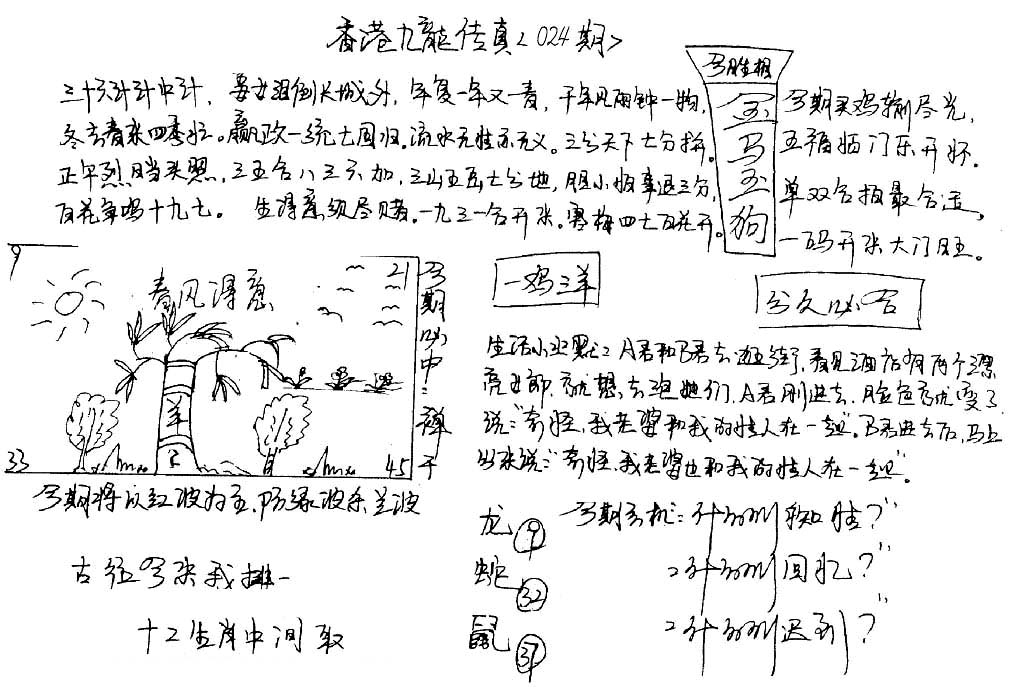 香港九龍传真<024期>
三十六计计中计，孟女泪倒长城外，年复一年又一春，千年风雨钟一物，
冬去春来四季忙。嬴政一统七国归。流水无情亦无义。三分天下七分拼。
正午烈日当头照，三五合八三六加，三山五岳七分地，胆小怕事退三分，
百花争鸣十九七。生得意须尽时。一九三一合开来。寒梅四七百花开。
今胜相
金
马
玉
狗
今期买鸡输尽光，
五福临门乐开怀。
单双合拍最合适。
一码开来大门旺。
9
21
33
45
春风得意
羊
今期必中:
子
今期将以红波为主，防绿波杀兰波
一鸡三羊
分久必合
生活小幽默: A君和B君去逛街，看见酒店有两个漂
亮女郎，就想去泡她们，A君刚进去，脸色就变了
说:"奇怪，我老婆和我的情人在一起"。B君进去后，马上
出来说:"奇怪，我老婆也和我的情人在一起"。
古经今来我排一
十二生肖中间取
龙 9
蛇 32
鼠 37
今期玄机: 什么叫知性?"
:什么叫回忆?"
:什么叫迟到?"